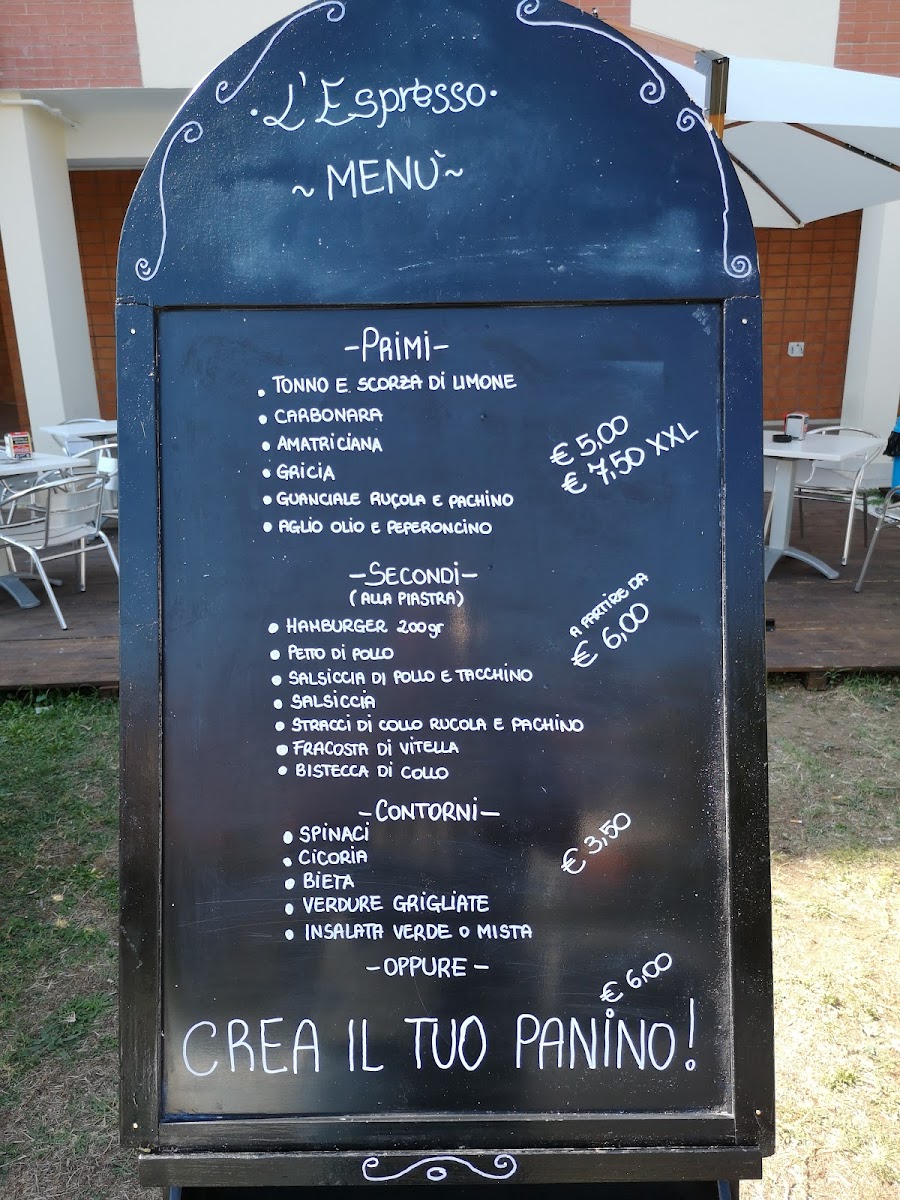 ·L'Espresso·
~ MENÙ ~
-PRIMI-
• TONNO E SCORZA DI LIMONE
• CARBONARA
• AMATRICIANA
• GRICIA
• GUANCIALE RUCOLA E PACHINO
• AGLIO OLIO E PEPERONCINO
€ 5,00
€ 7,50 XXL
-SECONDI-
(ALLA PIASTRA)
• HAMBURGER 200gr
• PETTO DI POLLO
• SALSICCIA DI POLLO E TACCHINO
• SALSICCIA
• STRACCI DI COLLO RUCOLA E PACHINO
• FRACOSTA DI VITELLA
• BISTECCA DI COLLO
A PARTIRE DA
€ 6,00
-CONTORNI-
• SPINACI
• CICORIA
• BIETA
• VERDURE GRIGLIATE
• INSALATA VERDE O MISTA
€ 3,50
-OPPURE-
€ 6,00
CREA IL TUO PANINO!